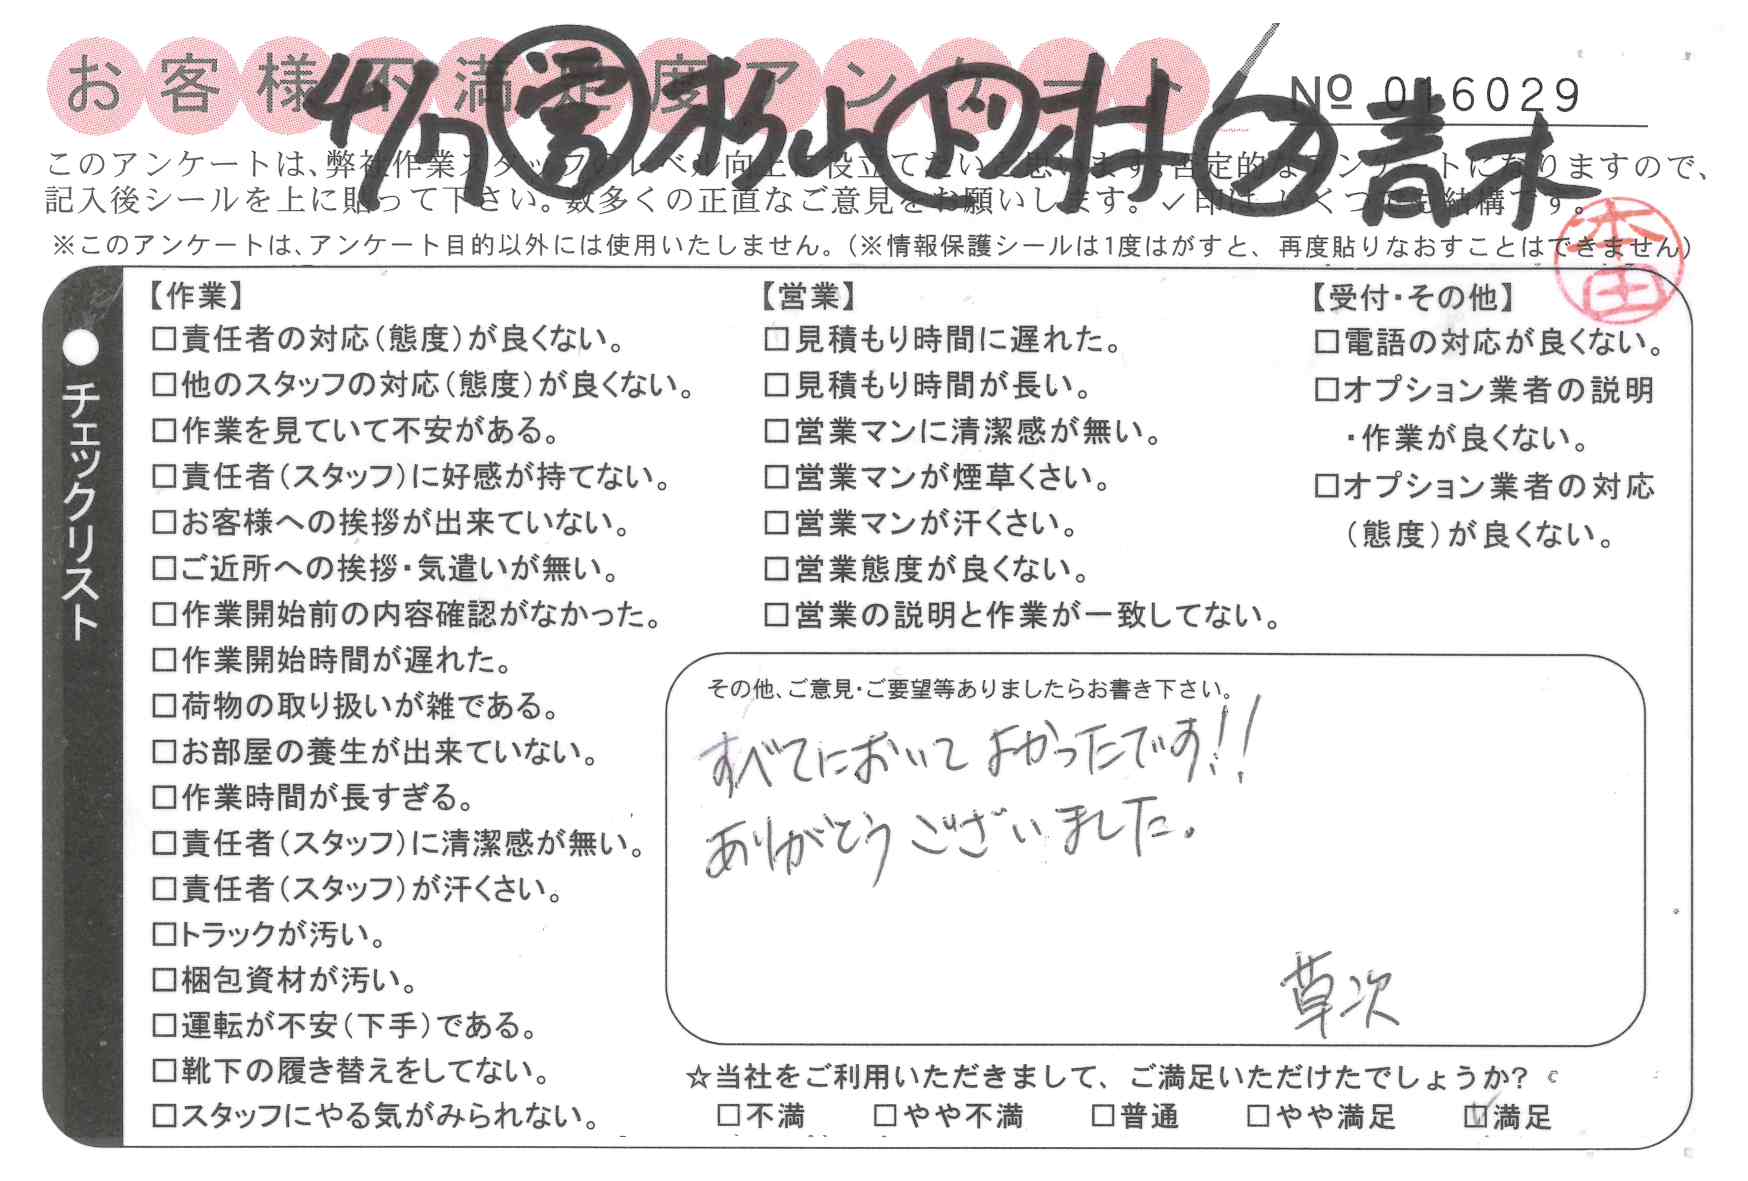 お客様不満足度アンケート
№ 016029
4/7 営 杉山 ドリ 村 青木
このアンケートは、弊社作業スタッフのレベル向上に役立てたいと思います。否定的なアンケートになりますので、
記入後シールを上に貼って下さい。数多くの正直なご意見をお願いします。✓印は、いくつでも結構です。
※このアンケートは、アンケート目的以外には使用いたしません。（※情報保護シールは1度はがすと、再度貼りなおすことはできません）
本田
●チェックリスト
【作業】
□責任者の対応（態度）が良くない。
□他のスタッフの対応（態度）が良くない。
□作業を見ていて不安がある。
□責任者（スタッフ）に好感が持てない。
□お客様への挨拶が出来ていない。
□ご近所への挨拶・気遣いが無い。
□作業開始前の内容確認がなかった。
□作業開始時間が遅れた。
□荷物の取り扱いが雑である。
□お部屋の養生が出来ていない。
□作業時間が長すぎる。
□責任者（スタッフ）に清潔感が無い。
□責任者（スタッフ）が汗くさい。
□トラックが汚い。
□梱包資材が汚い。
□運転が不安（下手）である。
□靴下の履き替えをしてない。
□スタッフにやる気がみられない。
【営業】
□見積もり時間に遅れた。
□見積もり時間が長い。
□営業マンに清潔感が無い。
□営業マンが煙草くさい。
□営業マンが汗くさい。
□営業態度が良くない。
□営業の説明と作業が一致してない。
【受付・その他】
□電語の対応が良くない。
□オプション業者の説明
・作業が良くない。
□オプション業者の対応
（態度）が良くない。
その他、ご意見・ご要望等ありましたらお書き下さい。
すべてにおいてよかったです!!
ありがとうございました。
草次
☆当社をご利用いただきまして、ご満足いただけたでしょうか?
□不満 □やや不満 □普通 □やや満足 ☑満足